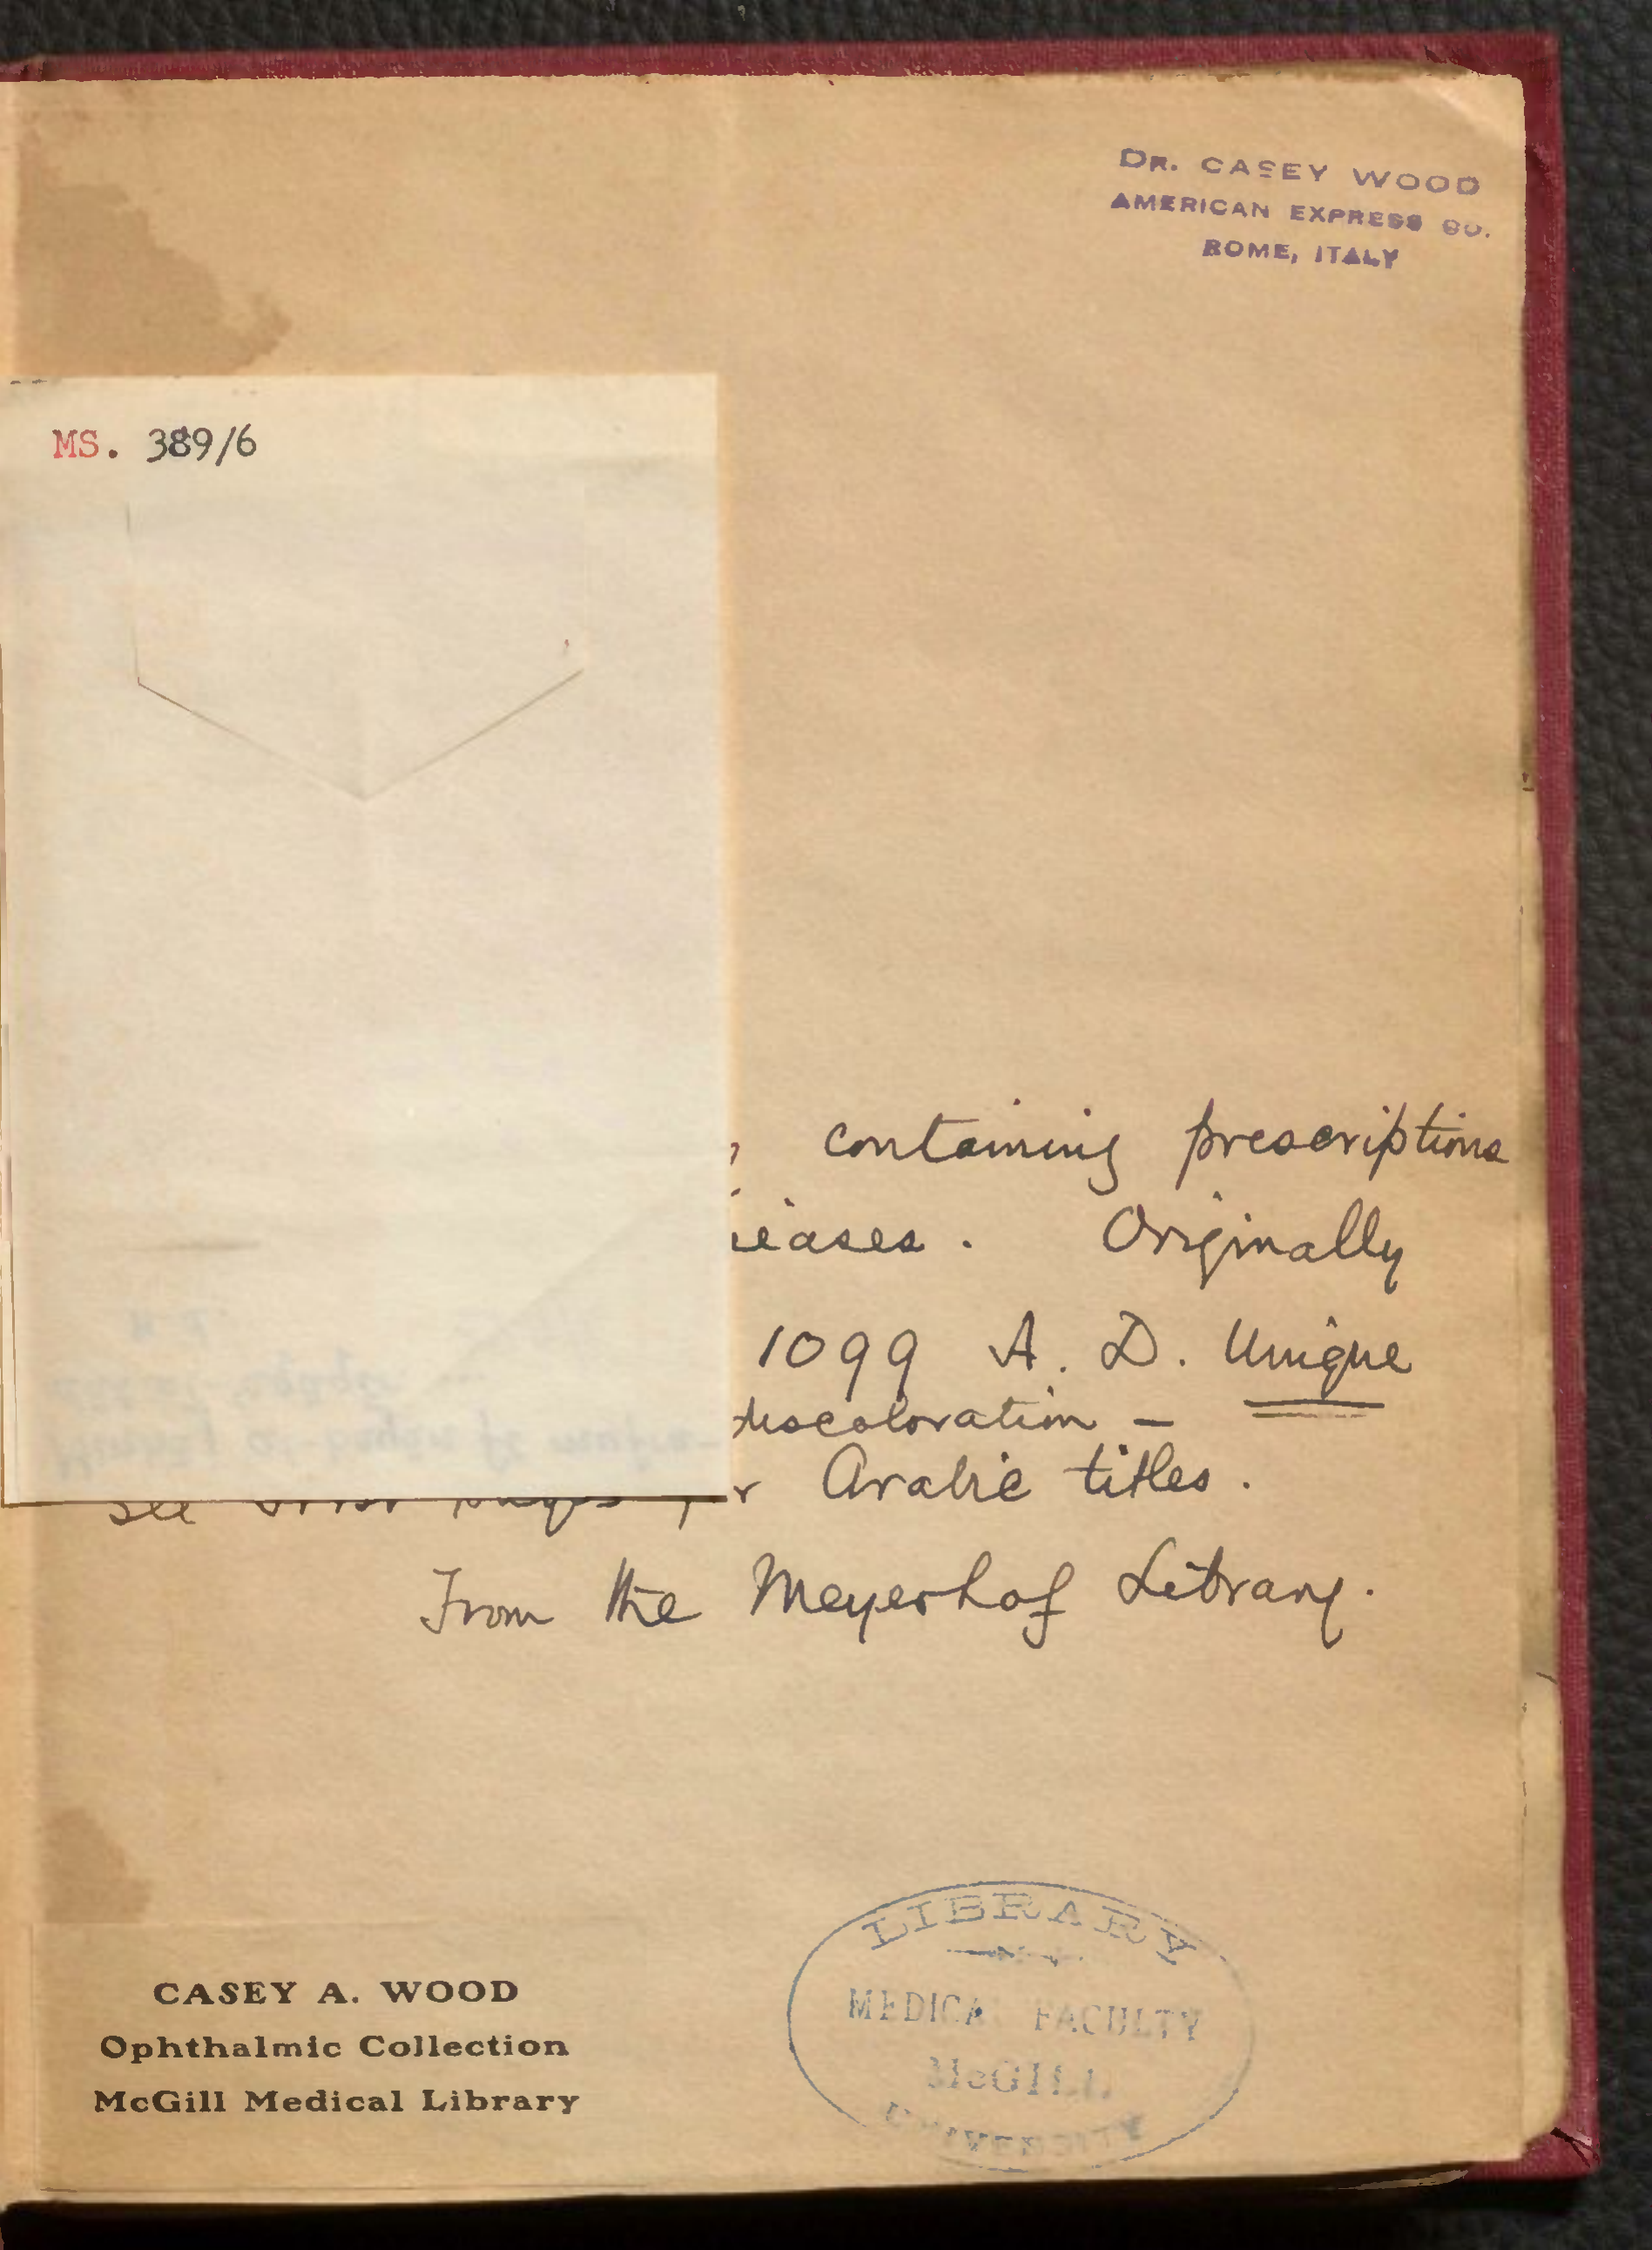 DR. CASEY WOOD
AMERICAN EXPRESS CO.
ROME, ITALY
MS. 389/6
containing prescriptions
eases. Originally
1099 A. D. Unique
discoloration —
see pages for Arabic titles.
From the Meyerhof Library.
CASEY A. WOOD
Ophthalmic Collection
McGill Medical Library
LIBRARY
MEDICAL FACULTY
McGILL
UNIVERSITY